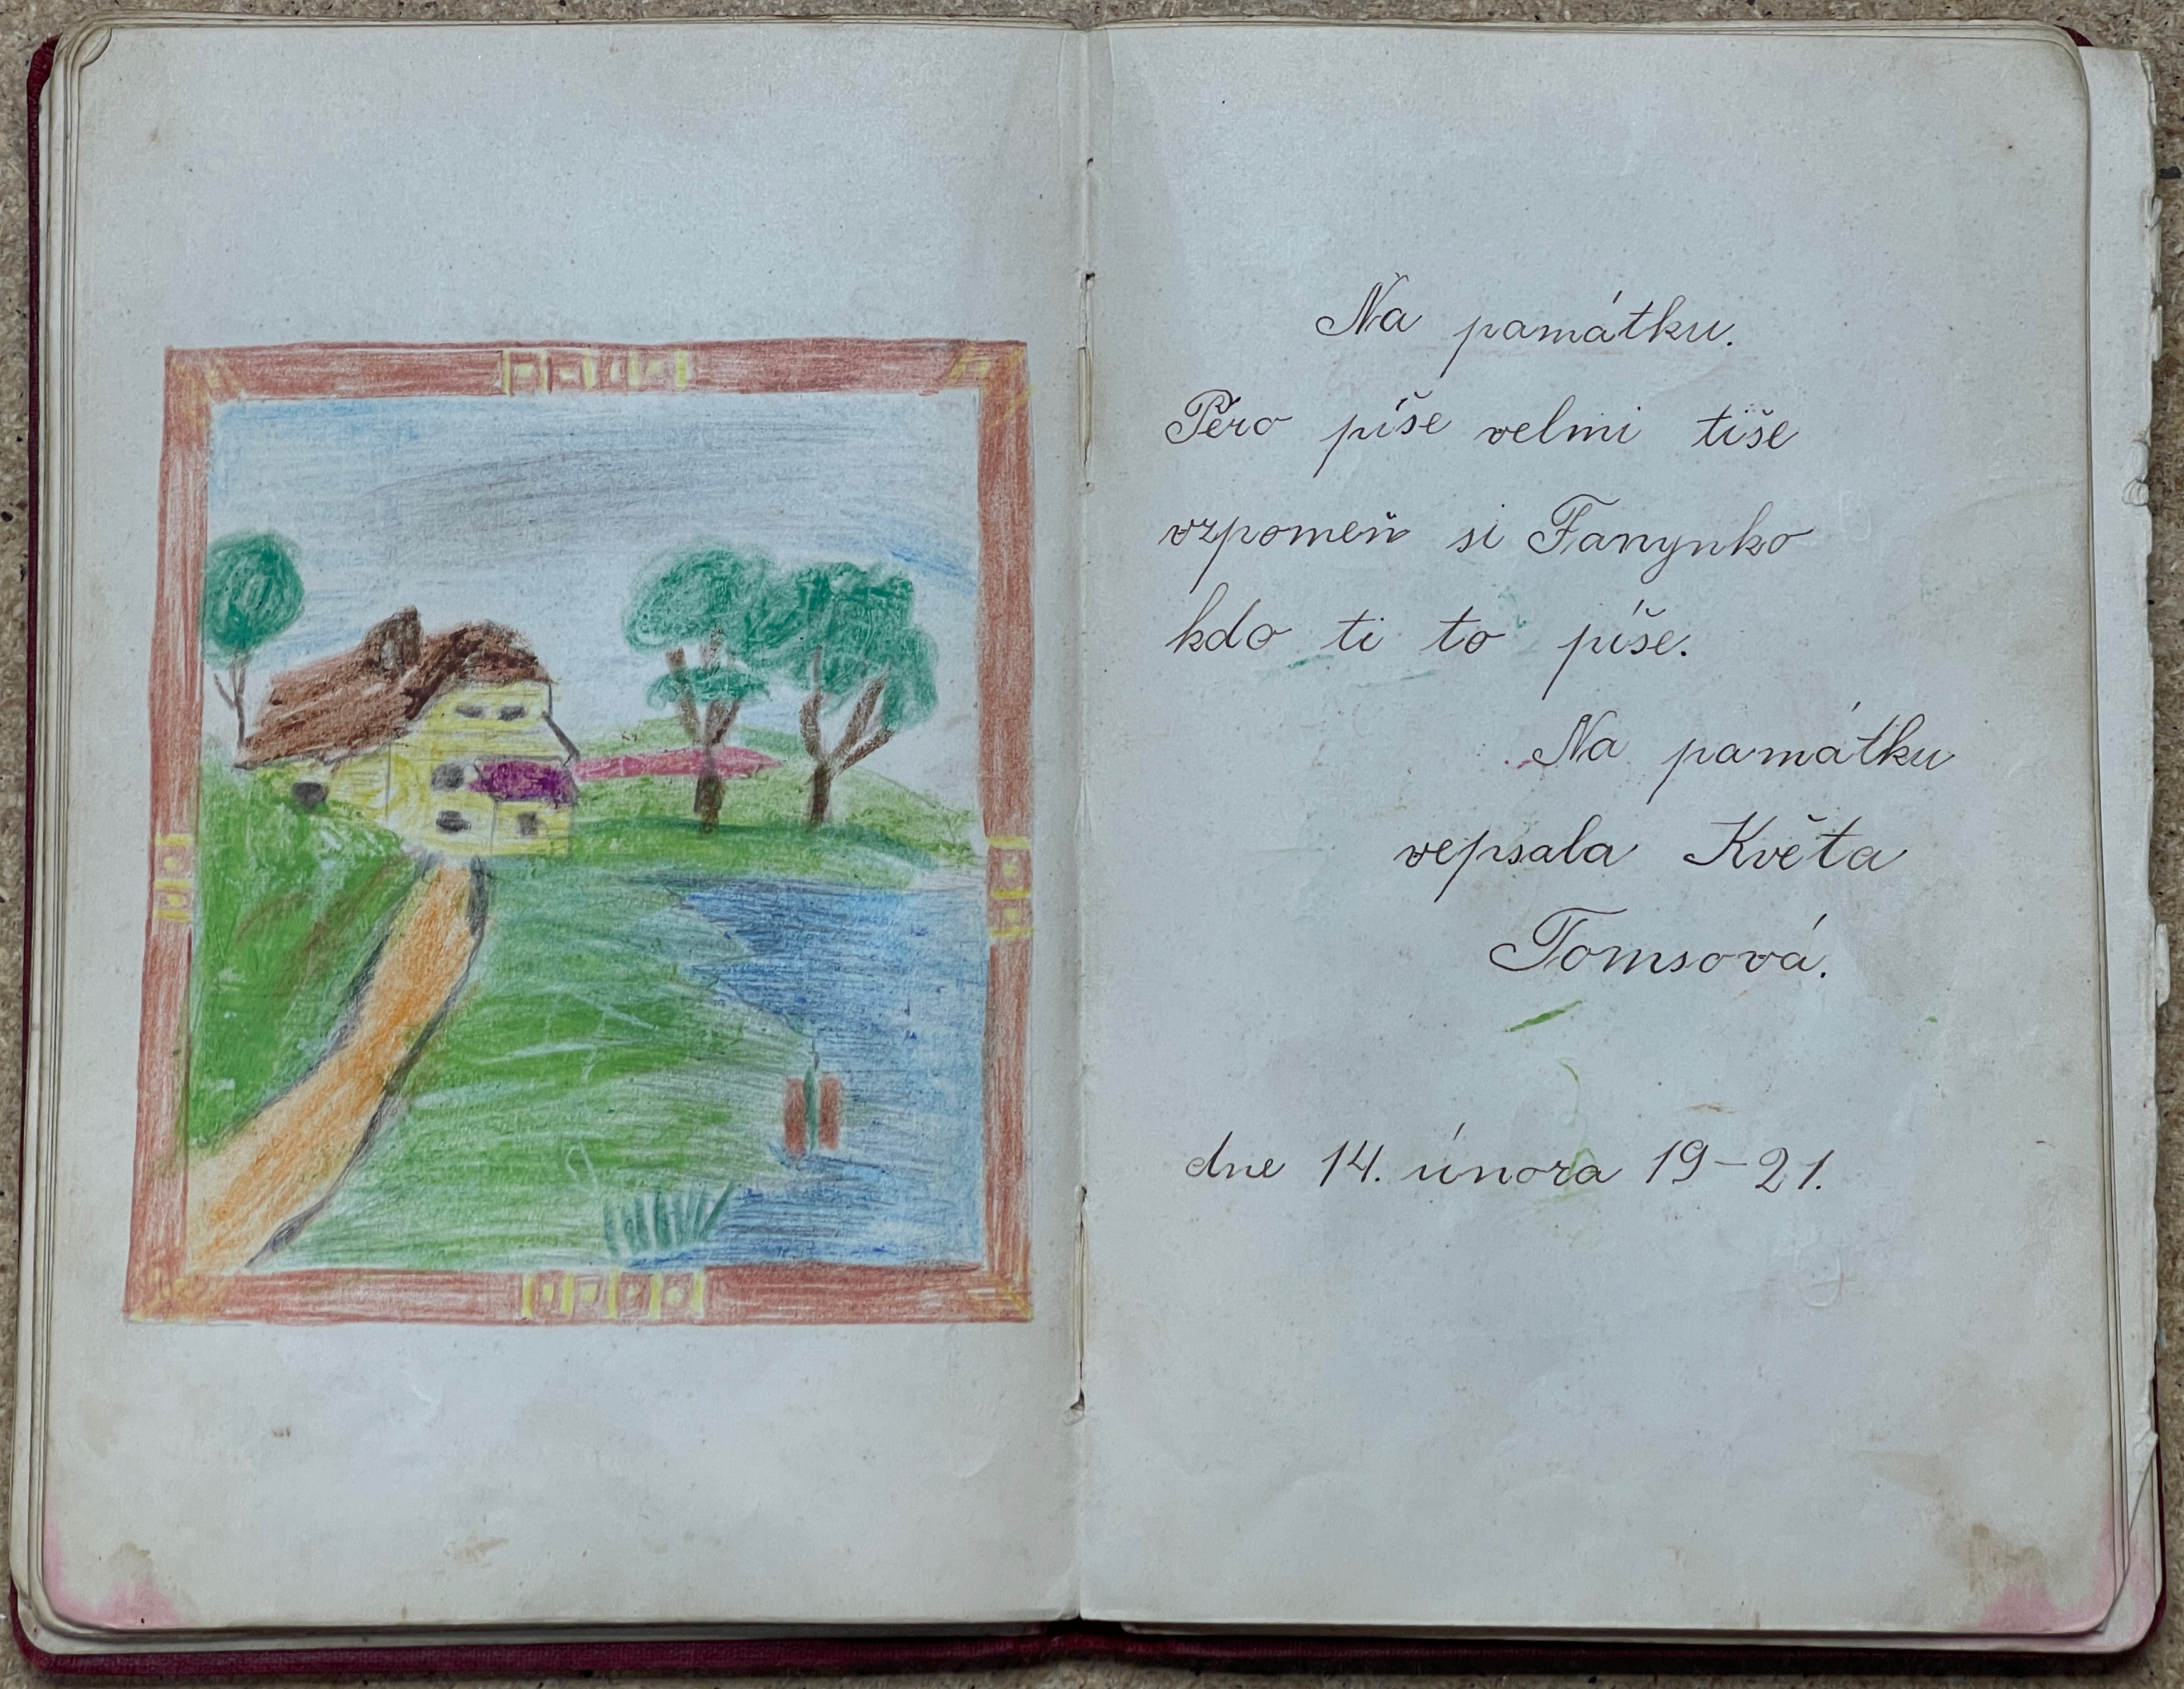 Na památku.
Péro píše velmi tiše
vzpomeň si Fanynko
kdo ti to píše.
Na památku
vepsala Květa
Tomsová.
dne 14. února 19-21.